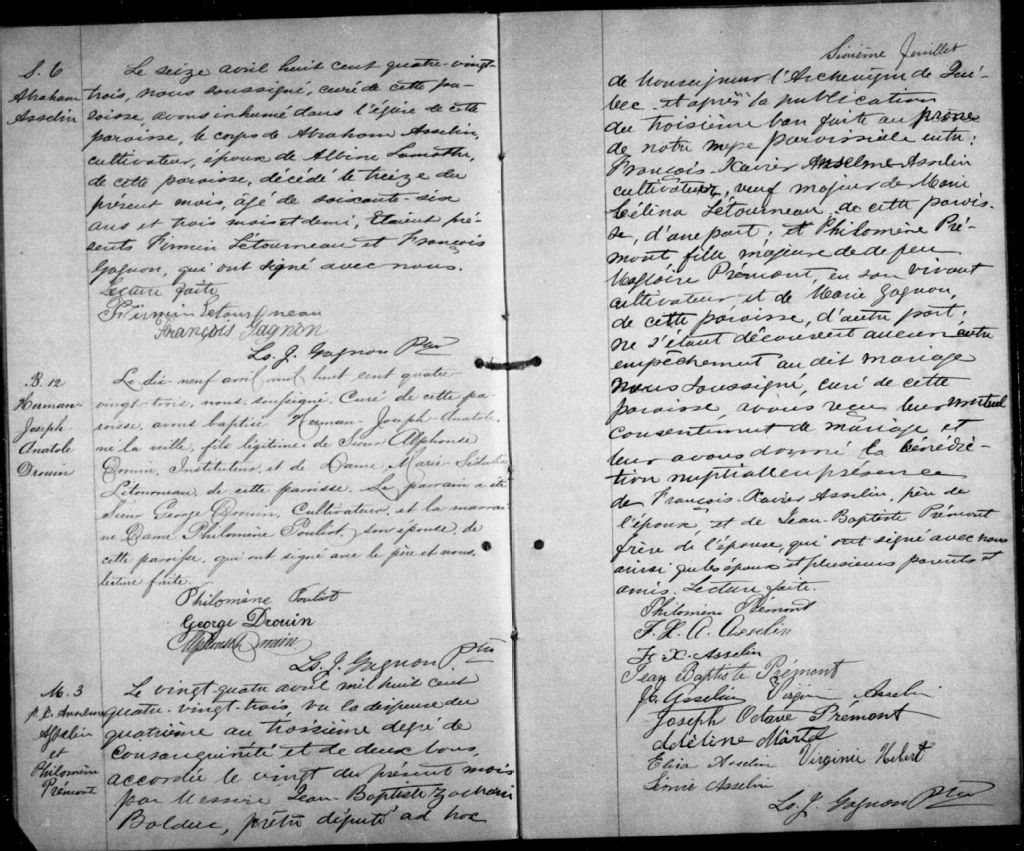 S. 6
Abraham
Asselin
Le seize avril huit cent quatre-vingt-
trois, nous soussigné, curé de cette pa-
roisse, avons inhumé dans l'église de cette
paroisse, le corps de Abraham Asselin,
cultivateur, époux de Albine Lamothe,
de cette paroisse, décédé le treize du
présent mois, âgé de soixante-six
ans et trois mois et demi, Étaient pré-
sents Firmin Létourneau et François
Gagnon, qui ont signé avec nous.
Lecture faite
Firmin Letourneau
François Gagnon
Ls. J. Gagnon Ptre
B. 12
Herman-
Joseph-
Anatole
Drouin
Le dix-neuf avril mil huit cent quatre-
vingt-trois, nous, soussigné, Curé de cette pa-
roisse, avons baptisé Herman-Joseph-Anatole,
né la veille, fils légitime de Sieur Alphonse
Drouin, Instituteur, et de Dame Marie Sédulie
Létourneau, de cette paroisse. Le parrain a été
Sieur George Drouin, Cultivateur, et la marrai-
ne Dame Philomène Pouliot, son épouse, de
cette paroisse, qui ont signé avec le père et nous,
lecture faite.
Philomène Pouliot
George Drouin
Alphonse Drouin
Ls. J. Gagnon Ptre
M. 3
F. X. Anselme
Asselin
et
Philomène
Prémont
Le vingt-quatre avril mil huit cent
quatre-vingt-trois, vu la dispense du
quatrième au troisième degré de
consanguinité et de deux bans,
accordée le vingt du présent mois
par Messire Jean-Baptiste Zacharie
Bolduc, prêtre député ad hoc
Sixième Feuillet
de Monseigneur l'Archevêque de Qué-
bec et après la publication
du troisième ban faite au prone
de notre messe paroissiale entre:
François-Xavier Anselme Asselin
cultivateur, veuf majeur de Marie
Célina Létourneau, de cette parois-
se, d'une part; et Philomène Pré-
mont fille majeure de de feu
Magloire Prémont, en son vivant
cultivateur et de Marie Gagnon,
de cette paroisse, d'autre part;
ne s'étant découvert aucun autre
empêchement au dit mariage
nous soussigné, curé de cette
paroisse, avons reçu leur mutuel
consentement de mariage et
leur avons donné la bénédic-
tion nuptiale en présence
de François-Xavier Asselin, père de
l'époux et de Jean-Baptiste Prémont
frère de l'épouse, qui ont signé avec nous
ainsi que les époux et plusieurs parents et
amis. Lecture faite.
Philomène Prémont
F. X. A. Asselin
F. X. Asselin
Jean Baptiste Prémont
Asselin Virginie Asselin
Joseph Octave Prémont
Adéline Martel
Eliza Asselin Virginie Hebert
Asselin
Ls. J. Gagnon Ptre